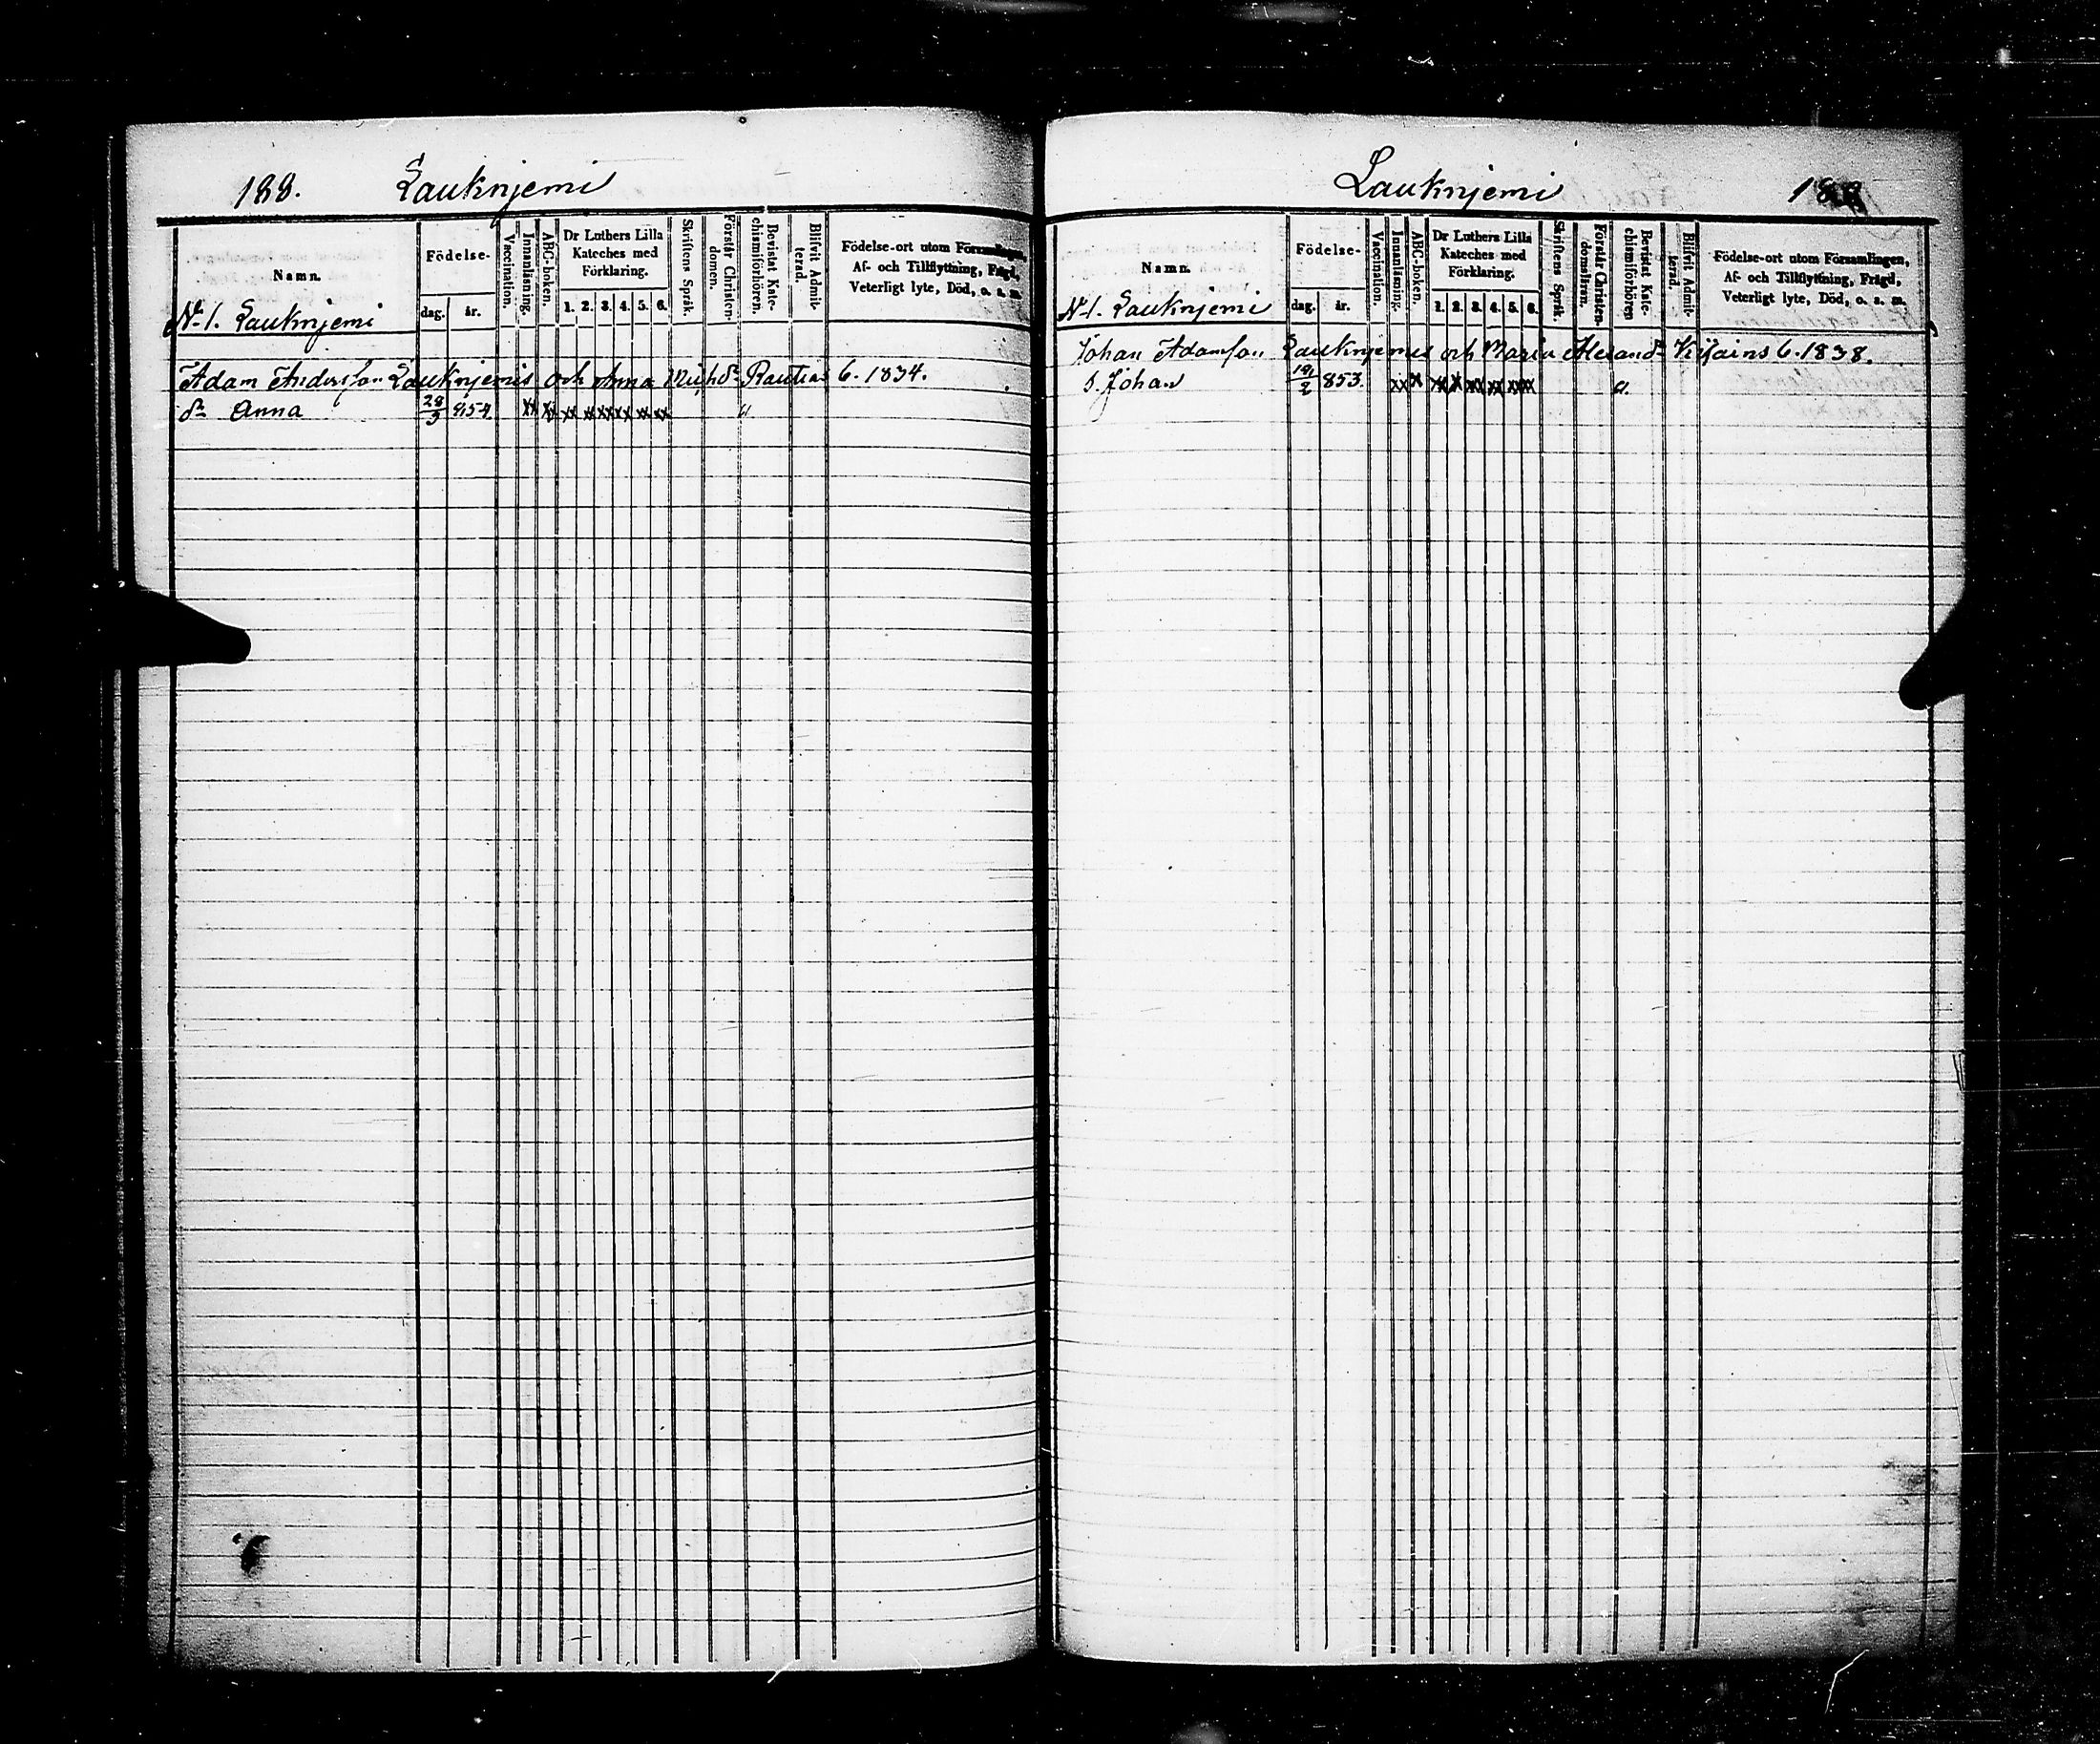 188. Lauknjemi
Namn.
Födelse-
dag. år.
Vaccination.
Innanläsning.
ABC-boken.
Dr Luthers Lilla Kateches med Förklaring.
1. 2. 3. 4. 5. 6.
Skriftens Språk.
Förstår Christen-domen.
Bevistat Kate-chismiförhören.
Blifvit Admit-terad.
Födelse-ort utom Församlingen,
Af- och Tillflyttning, Frägd,
Veterligt lyte, Död, o. s. m.
N-1. Lauknjemi
Adam Andersson Lauknjemis och Anna Rautias 6. 1834.
dr Anna 28/3 854. xx xx xx xx xx xx xx xx a
Lauknjemi
Namn.
Födelse-
dag. år.
Vaccination.
Innanläsning.
ABC-boken.
Dr Luthers Lilla Kateches med Förklaring.
1. 2. 3. 4. 5. 6.
Skriftens Språk.
Förstår Christen-domsläran.
Bevistat Kate-chismiförhören
Blifvit Admit-terad.
Födelse-ort utom Församlingen,
Af- och Tillflyttning, Frägd,
Veterligt lyte, Död, o. s. m.
N-1. Lauknjemi
Johan Adamson Lauknjemis och Maria 6. 1838.
s. Johan 853. xx x xx x xx xx xx xx a.